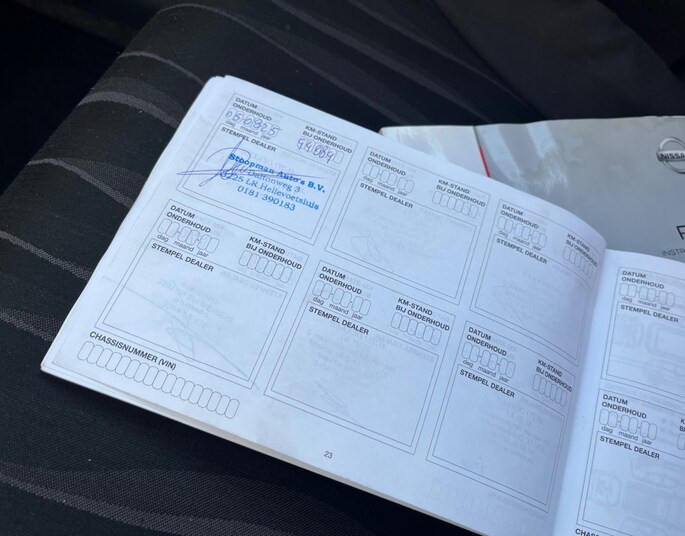 DATUM
ONDERHOUD
050925
dag maand jaar
KM-STAND
BIJ ONDERHOUD
STEMPEL DEALER
Stoopman Auto's B.V.
Daltonweg 3
LR Hellevoetsluis
0181 390183
DATUM
ONDERHOUD
dag maand jaar
KM-STAND
BIJ ONDERHOUD
STEMPEL DEALER
DATUM
ONDERHOUD
dag maand jaar
KM-STAND
BIJ ONDERHOUD
STEMPEL DEALER
DATUM
ONDERHOUD
dag maand jaar
KM-STAND
BIJ ONDERHOUD
STEMPEL DEALER
DATUM
ONDERHOUD
dag maand jaar
KM-STAND
BIJ ONDERHOUD
STEMPEL DEALER
DATUM
ONDERHOUD
dag maand jaar
KM-STAND
BIJ ONDERHOUD
STEMPEL DEALER
CHASSISNUMMER (VIN)
23
DATUM
ONDERHOUD
dag maand jaar
STEMPEL DEALER
DATUM
ONDERHOUD
dag maand jaar
STEMPEL DEALER
CHASSI
NISSA
INSTR